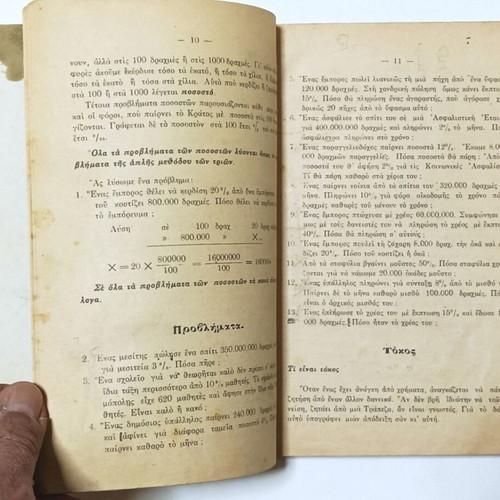 — 10 —
νουν, ἀλλὰ στὶς 100 δραχμὲς ἢ στὶς 1000 δραχμές. Γι'
φορὲς ἀκοῦμε ἐκέρδισε τόσο τὰ ἑκατό, ἢ τόσο τὰ χίλια.
τὰ ἑκατὸ ἢ τόσο στὰ χίλια. Αὐτὸ ποὺ κερδίζει ἢ
στὰ 100 ἢ στὰ 1000 λέγεται ποσοστό.
Τέτοια προβλήματα ποσοστῶν παρουσιάζονται κάθε
καὶ οἱ φόροι, ποὺ παίρνει τὸ Κράτος μὲ ποσοστὸ στὶς
γίζονται. Γράφεται δὲ τὸ ποσοστὸν στὰ 100 ἔτσι %
ἔτσι ‰.
Ὅλα τὰ προβλήματα τῶν ποσοστῶν λύονται ὅπως
βλήματα τῆς ἁπλῆς μεθόδου τῶν τριῶν.
Ἂς λύσωμε ἕνα πρόβλημα:
1. Ἕνας ἔμπορος θέλει νὰ κερδίση 20% ἀπὸ ἕνα ἐμπόρευμα
τοῦ κοστίζει 800.000 δραχμές. Πόσο θέλει νὰ
τὸ ἐμπόρευμα;
Λύση σὲ 100 δραχ 20 δραχ
» 800.000 » X »
X = 20 × 800000/100 = 16000000/100 = 160000
Σὲ ὅλα τὰ προβλήματα τῶν ποσοστῶν τὰ ποσὰ εἶναι
λογα.
Προβλήματα.
2. Ἕνας μεσίτης πώλησε ἕνα σπίτι 350.000.000 δραχμὲς
γιὰ μεσιτεία 3%. Πόσα πῆρε;
3. Ἕνα σχολεῖο γιὰ νὰ θεωρῆται καλὸ δὲν πρέπει
ἴδια τάξη περισσότερο ἀπὸ 10% μαθητές. Τὸ
μόπολης εἶχε 620 μαθητὲς καὶ ἄφησε στὴν ἴδια
θητές. Εἶναι καλὸ ἢ κακό;
4. Ἕνας δημόσιος ὑπάλληλος παίρνει 240.000 δραχμὲς
καὶ ἀφίνει γιὰ διάφορα ταμεῖα ποσοστὸ
παίρνει καθαρὸ τὸ μῆνα;
7
— 11 —
5. Ἕνας ἔμπορος πωλεῖ λιανικῶς τὴ μιὰ πήχη ἀπὸ ἕνα ὕφασμα
120.000 δραχμές. Στὴ χονδρικὴ πώληση ὅμως κάνει
15%. Πόσο θὰ πληρώση ἕνας ἀγοραστής, ποὺ ἀγόρασε
920 πήχες ἀπὸ τὸ ὕφασμα αὐτό;
6. Ἕνας ἀσφάλισε τὸ σπίτι του σὲ μιὰ Ἀσφαλιστικὴ Ἑται
γιὰ 400.000.000 δραχμὲς καὶ πληρώνει 2‰ τὸ μῆνα.
ἀσφάλιστρα πληρώνει στὸ χρόνο;
7. Ἕνας παραγγελιοδόχος παίρνει ποσοστὰ 12%. Ἔκαμε
000 δραχμὲς παραγγελίες. Πόσα θὰ πάρη;
ποσοστά του θὰ ἀφήση 3% γιὰ τὶς Κοινωνικὲς Ἀσφαλίσεις
Τί θὰ πάρη καθαρὸ στὰ χέρια του;
8. Ἕνας παίρνει νοίκια ἀπὸ τὰ σπίτια του 320.000 δραχμὲς
μῆνα. Πληρώνει 10% γιὰ φόρο οἰκοδομῆς τὸ χρόνο
δραχμὲς καθαρὲς τοῦ μένουν τὸ χρόνο;
9. Ἕνας ἔμπορος πτώχευσε μὲ χρέος 60.000.000. Συμφώνησε
μως μὲ τοὺς δανειστές του νὰ πληρώση τὸ χρέος μὲ
40%. Πόσα θὰ πληρώση σ' αὐτούς;
10. Ἕνας ἔμπορος πωλεῖ τὴ ζάχαρη 8.000 δραχ. τὴν ὀκὰ καὶ
δίζει 20%. Πόσο τοῦ κοστίζει ἡ ὀκά;
11. Ἀπὸ τὰ σταφύλια βγαίνει μοῦστος 50%. Πόσα σταφύλια
ζονται γιὰ νὰ κάνωμε 20.000 ὀκάδες μοῦστο;
12. Ἕνας ὑπάλληλος πληρώνει γιὰ σύνταξη 8% ἀπὸ τὸ μισθό
Παίρνει δὲ τὸ μῆνα καθαρὸ μισθὸ 100.000 δραχμές.
εἶναι ὁ ἀρχικὸς μισθός του;
13. Ἕνας ἐπλήρωσε τὸ χρέος του μὲ ἔκπτωση 15% καὶ ἔδωσε
000 δραχμές. Πόσο ἦταν τὸ χρέος του;
Τόκος
Τί εἶναι τόκος
Ὅταν ἕνας ἔχει ἀνάγκη ἀπὸ χρήματα, ἀναγκάζεται νὰ
ζητήση ἀπὸ ἕναν ἄλλον δανεικά. Ἂν δὲν βρῆ ἰδιώτην νὰ τῶν
νείση, ζητάει ἀπὸ μιὰ Τράπεζα, ἂν εἶναι γνωστός. Γιὰ τὸ
αὐτὸ ὑπογράφει μιὰν ἀπόδειξη σὰν κι' αὐτή.